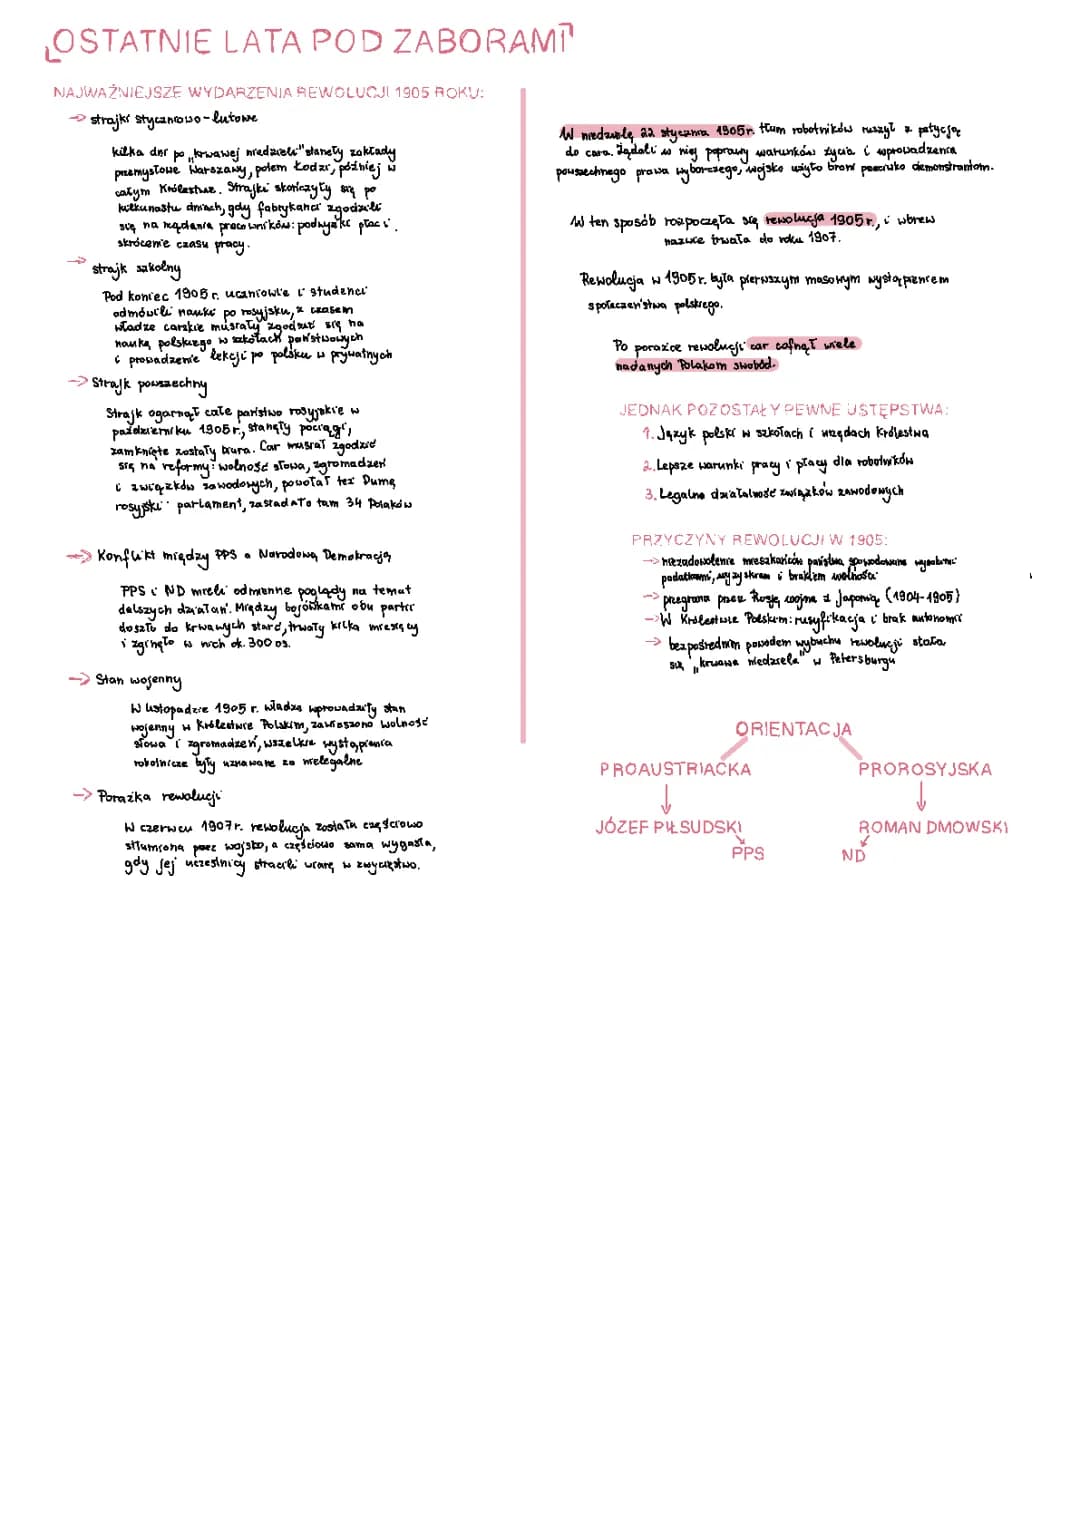 OSTATNIE LATA POD ZABORAMI
NAJWAŻNIEJSZE WYDARZENIA REWOLUCJI 1905 ROKU:
→ strajki styczniowo-lutowe
kilka dni po „krwawej niedzieli" stanęły zakłady
przemysłowe Warszawy, potem Łodzi, później w
całym Królestwie. Strajki skończyły się po
kilkunastu dniach, gdy fabrykanci zgodzili
się na żądania pracowników: podwyżki płac i
skrócenie czasu pracy.
→ strajk szkolny
Pod koniec 1905 r. uczniowie i studenci
odmówili nauki po rosyjsku, z czasem
władze carskie musiały zgodzić się na
naukę polskiego w szkołach państwowych
i prowadzenie lekcji po polsku w prywatnych
→ Strajk powszechny
Strajk ogarnął całe państwo rosyjskie w
październiku 1905 r., stanęły pociągi,
zamknięte zostały biura. Car musiał zgodzić
się na reformy: wolność słowa, zgromadzeń
i związków zawodowych, powołał też Dumę
rosyjski parlament, zasiadało tam 34 Polaków
→ Konflikt między PPS a Narodową Demokracją
PPS i ND mieli odmienne poglądy na temat
dalszych działań. Między bojówkami obu partii
doszło do krwawych starć, trwały kilka miesięcy
i zginęło w nich ok. 300 os.
→ Stan wojenny
W listopadzie 1905 r. władze wprowadziły stan
wojenny w Królestwie Polskim, zawieszono wolność
słowa i zgromadzeń, wszelkie wystąpienia
robotnicze były uznawane za nielegalne
→ Porażka rewolucji
W czerwcu 1907 r. rewolucja została częściowo
stłumiona przez wojsko, a częściowo sama wygasła,
gdy jej uczestnicy stracili wiarę w zwycięstwo.
W niedzielę 22 stycznia 1905r. tłum robotników ruszył z petycją
do cara. Żądali w niej poprawy warunków życia i wprowadzenia
powszechnego prawa wyborczego, wojsko użyło broni przeciwko demonstrantom.
W ten sposób rozpoczęła się rewolucja 1905 r., i wbrew
nazwie trwała do roku 1907.
Rewolucja w 1905 r. była pierwszym masowym wystąpieniem
społeczeństwa polskiego.
Po porażce rewolucji car cofnął wiele
nadanych Polakom swobód.
JEDNAK POZOSTAŁY PEWNE USTĘPSTWA:
1. Język polski w szkołach i urzędach Królestwa
2. Lepsze warunki pracy i płacy dla robotników
3. Legalna działalność związków zawodowych
PRZYCZYNY REWOLUCJI W 1905:
→ niezadowolenie mieszkańców państwa spowodowane wysokimi
podatkami, wyzyskiem i brakiem wolności
→ przegrana przez Rosję wojna z Japonią (1904-1905)
→ W Królestwie Polskim: rusyfikacja i brak autonomii
→ bezpośrednim powodem wybuchu rewolucji stała
się „krwawa niedziela" w Petersburgu
ORIENTACJA
PROAUSTRIACKA PROROSYJSKA
JÓZEF PIŁSUDSKI ROMAN DMOWSKI
PPS ND